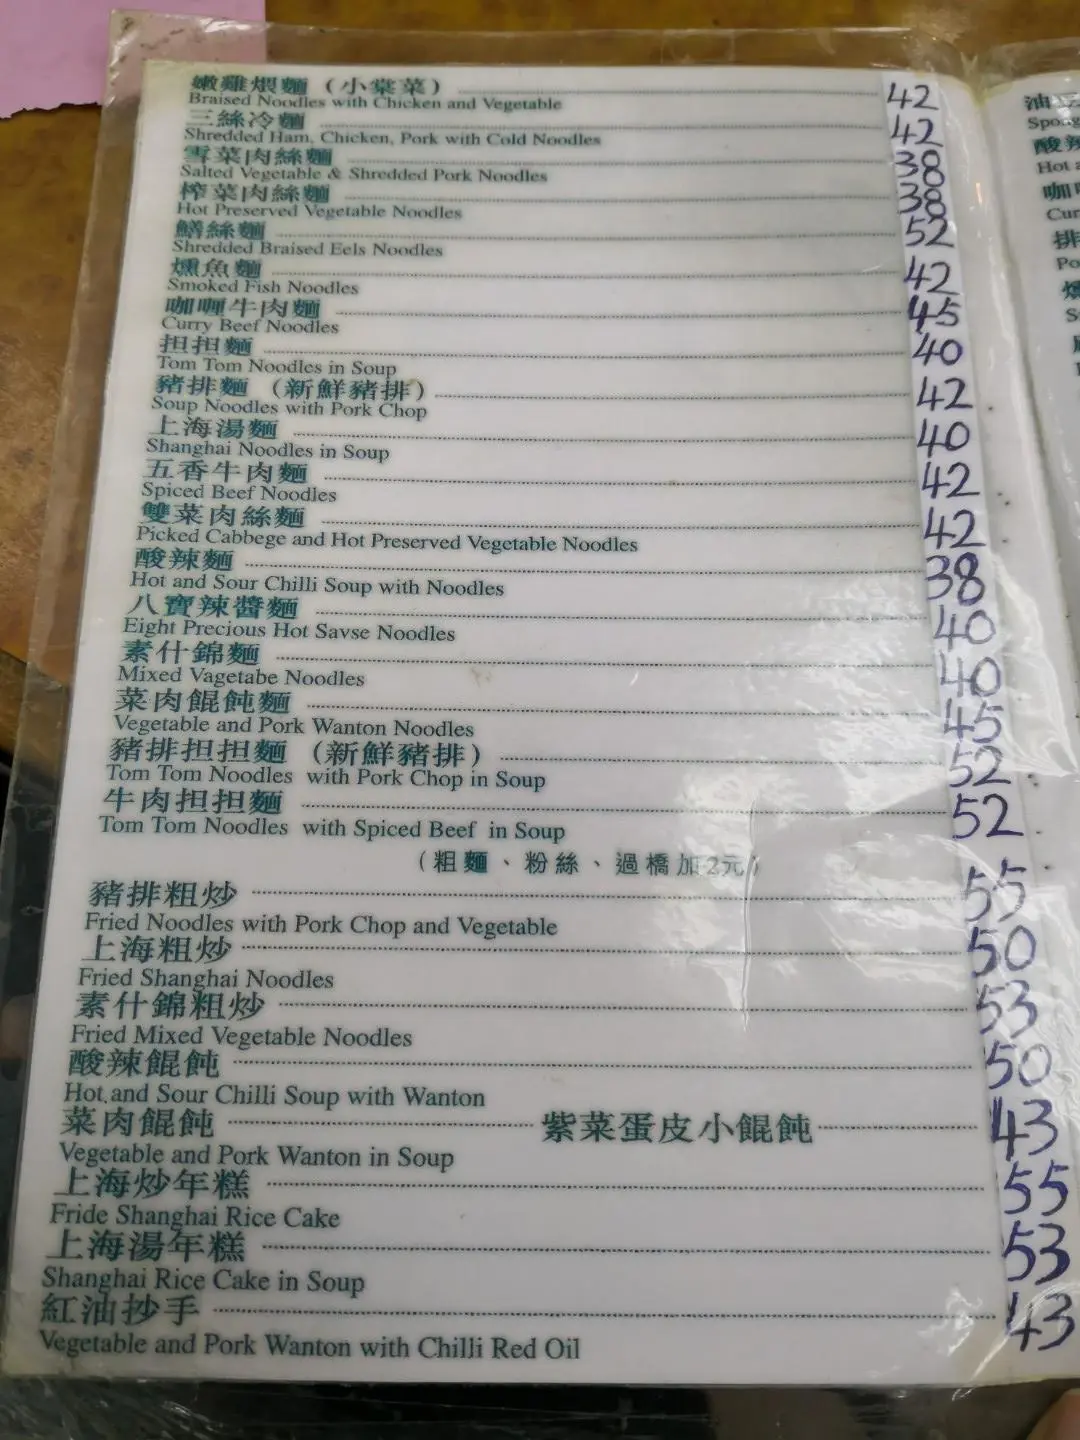 嫩雞煨麵（小棠菜） 42
Braised Noodles with Chicken and Vegetable
三絲冷麵 42
Shredded Ham, Chicken, Pork with Cold Noodles
雪菜肉絲麵 38
Salted Vegetable & Shredded Pork Noodles
榨菜肉絲麵 38
Hot Preserved Vegetable Noodles
鱔絲麵 52
Shredded Braised Eels Noodles
燻魚麵 42
Smoked Fish Noodles
咖喱牛肉麵 45
Curry Beef Noodles
担担麵 40
Tom Tom Noodles in Soup
豬排麵（新鮮豬排） 42
Soup Noodles with Pork Chop
上海湯麵 40
Shanghai Noodles in Soup
五香牛肉麵 42
Spiced Beef Noodles
雙菜肉絲麵 42
Picked Cabbege and Hot Preserved Vegetable Noodles
酸辣麵 38
Hot and Sour Chilli Soup with Noodles
八寶辣醬麵 40
Eight Precious Hot Savse Noodles
素什錦麵 40
Mixed Vagetabe Noodles
菜肉餛飩麵 45
Vegetable and Pork Wanton Noodles
豬排担担麵（新鮮豬排） 52
Tom Tom Noodles with Pork Chop in Soup
牛肉担担麵 52
Tom Tom Noodles with Spiced Beef in Soup
（粗麵、粉絲、過橋加2元）
豬排粗炒 55
Fried Noodles with Pork Chop and Vegetable
上海粗炒 50
Fried Shanghai Noodles
素什錦粗炒 53
Fried Mixed Vegetable Noodles
酸辣餛飩 50
Hot and Sour Chilli Soup with Wanton
菜肉餛飩 紫菜蛋皮小餛飩 43
Vegetable and Pork Wanton in Soup
上海炒年糕 55
Fride Shanghai Rice Cake
上海湯年糕 53
Shanghai Rice Cake in Soup
紅油抄手 43
Vegetable and Pork Wanton with Chilli Red Oil
油
酸辣
Hot
排